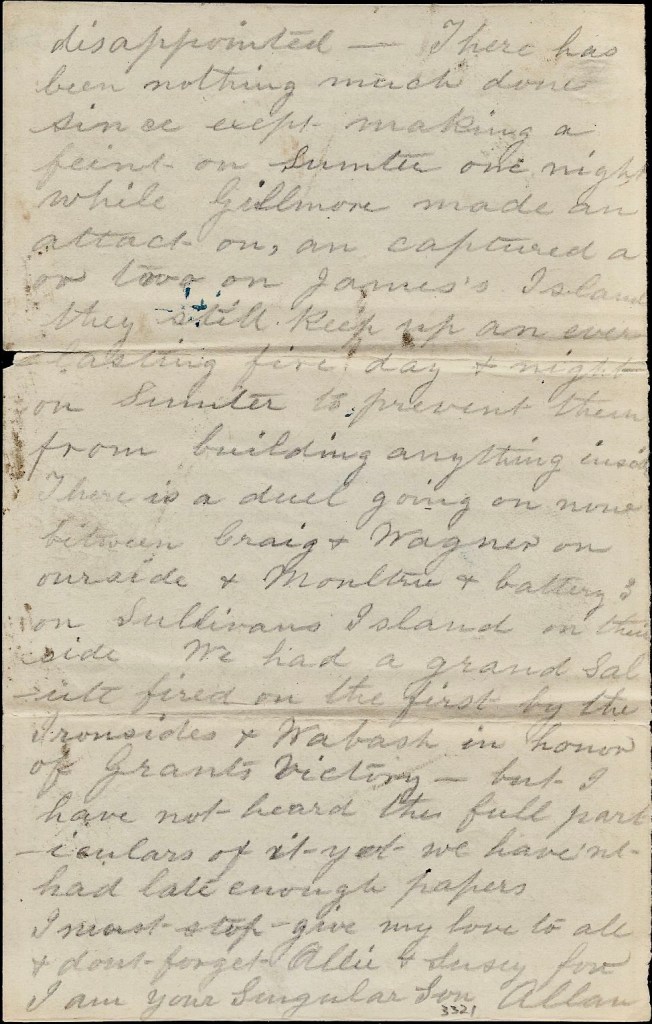 disappointed — There has
been nothing much done
since exept making a
feint on Sumter one night
while Gillmore made an
attact on, an captured a
or two on James's Island
they still keep up an ever
lasting fire day & night
on Sumter to prevent them
from building anything inside
There is a duel going on now
between Craig & Wagner on
our side & Moultrie & battery
on Sullivans Island on their
side We had a grand Sal
-ute fired on the first by the
Ironsides & Wabash in honor
of Grants Victory — but I
have not heard the full part
-iculars of it yet we have'nt
had late enough papers
I must stop - give my love to all
& dont forget Allie & Susey for
I am your Singular Son Allan
3321